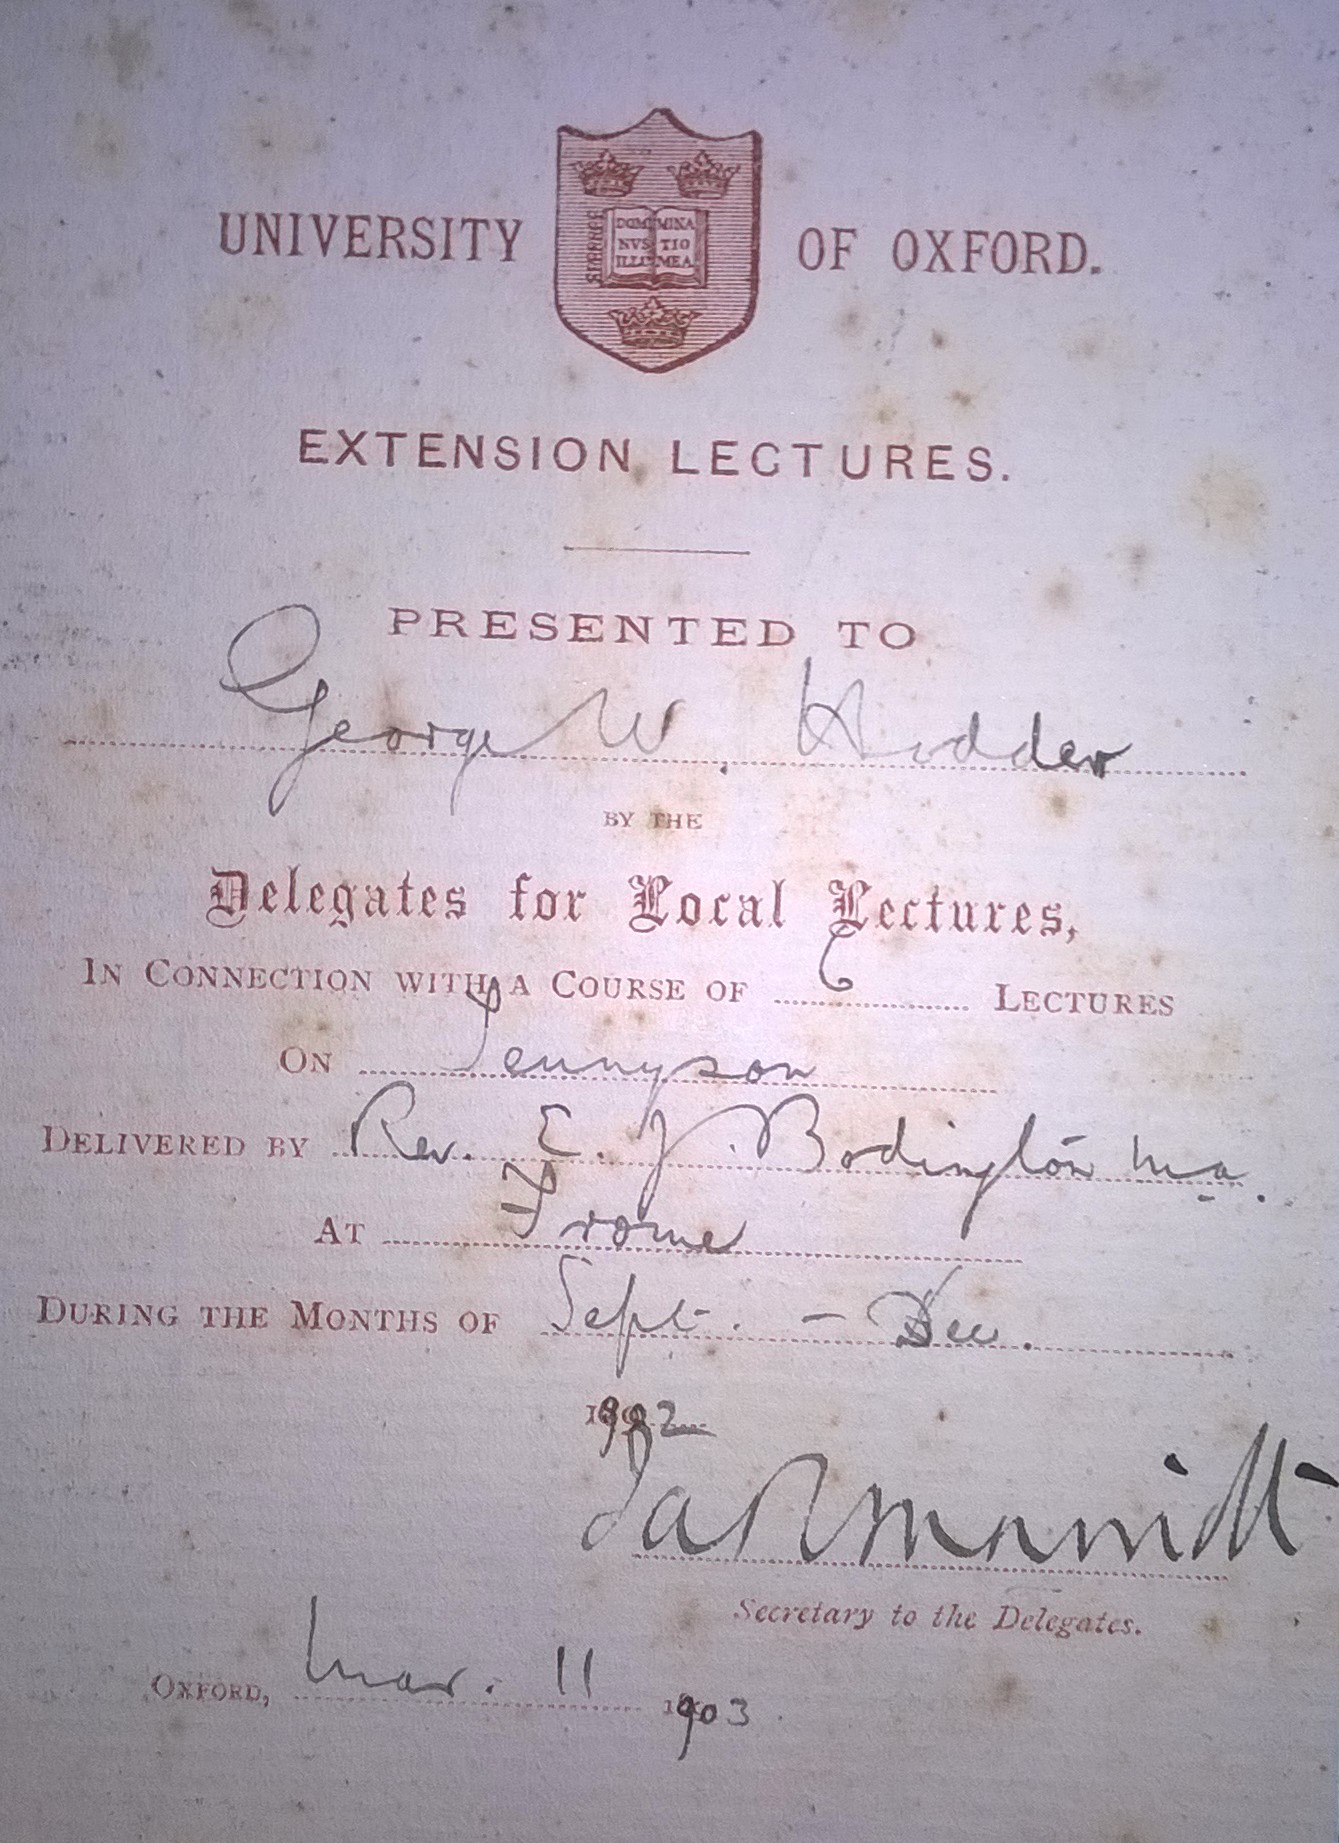 UNIVERSITY OF OXFORD.
DOMI MINA
NVS TIO
ILLV MEA
EXTENSION LECTURES.
PRESENTED TO
George W. Hodder
BY THE
Delegates for Local Lectures,
IN CONNECTION WITH A COURSE OF 6 LECTURES
ON Tennyson
DELIVERED BY Rev. E. J. Bodington M.a.
AT Frome
DURING THE MONTHS OF Sept. – Dec.
1902
J. A. R. Marriott
Secretary to the Delegates.
OXFORD, Mar. 11 1903